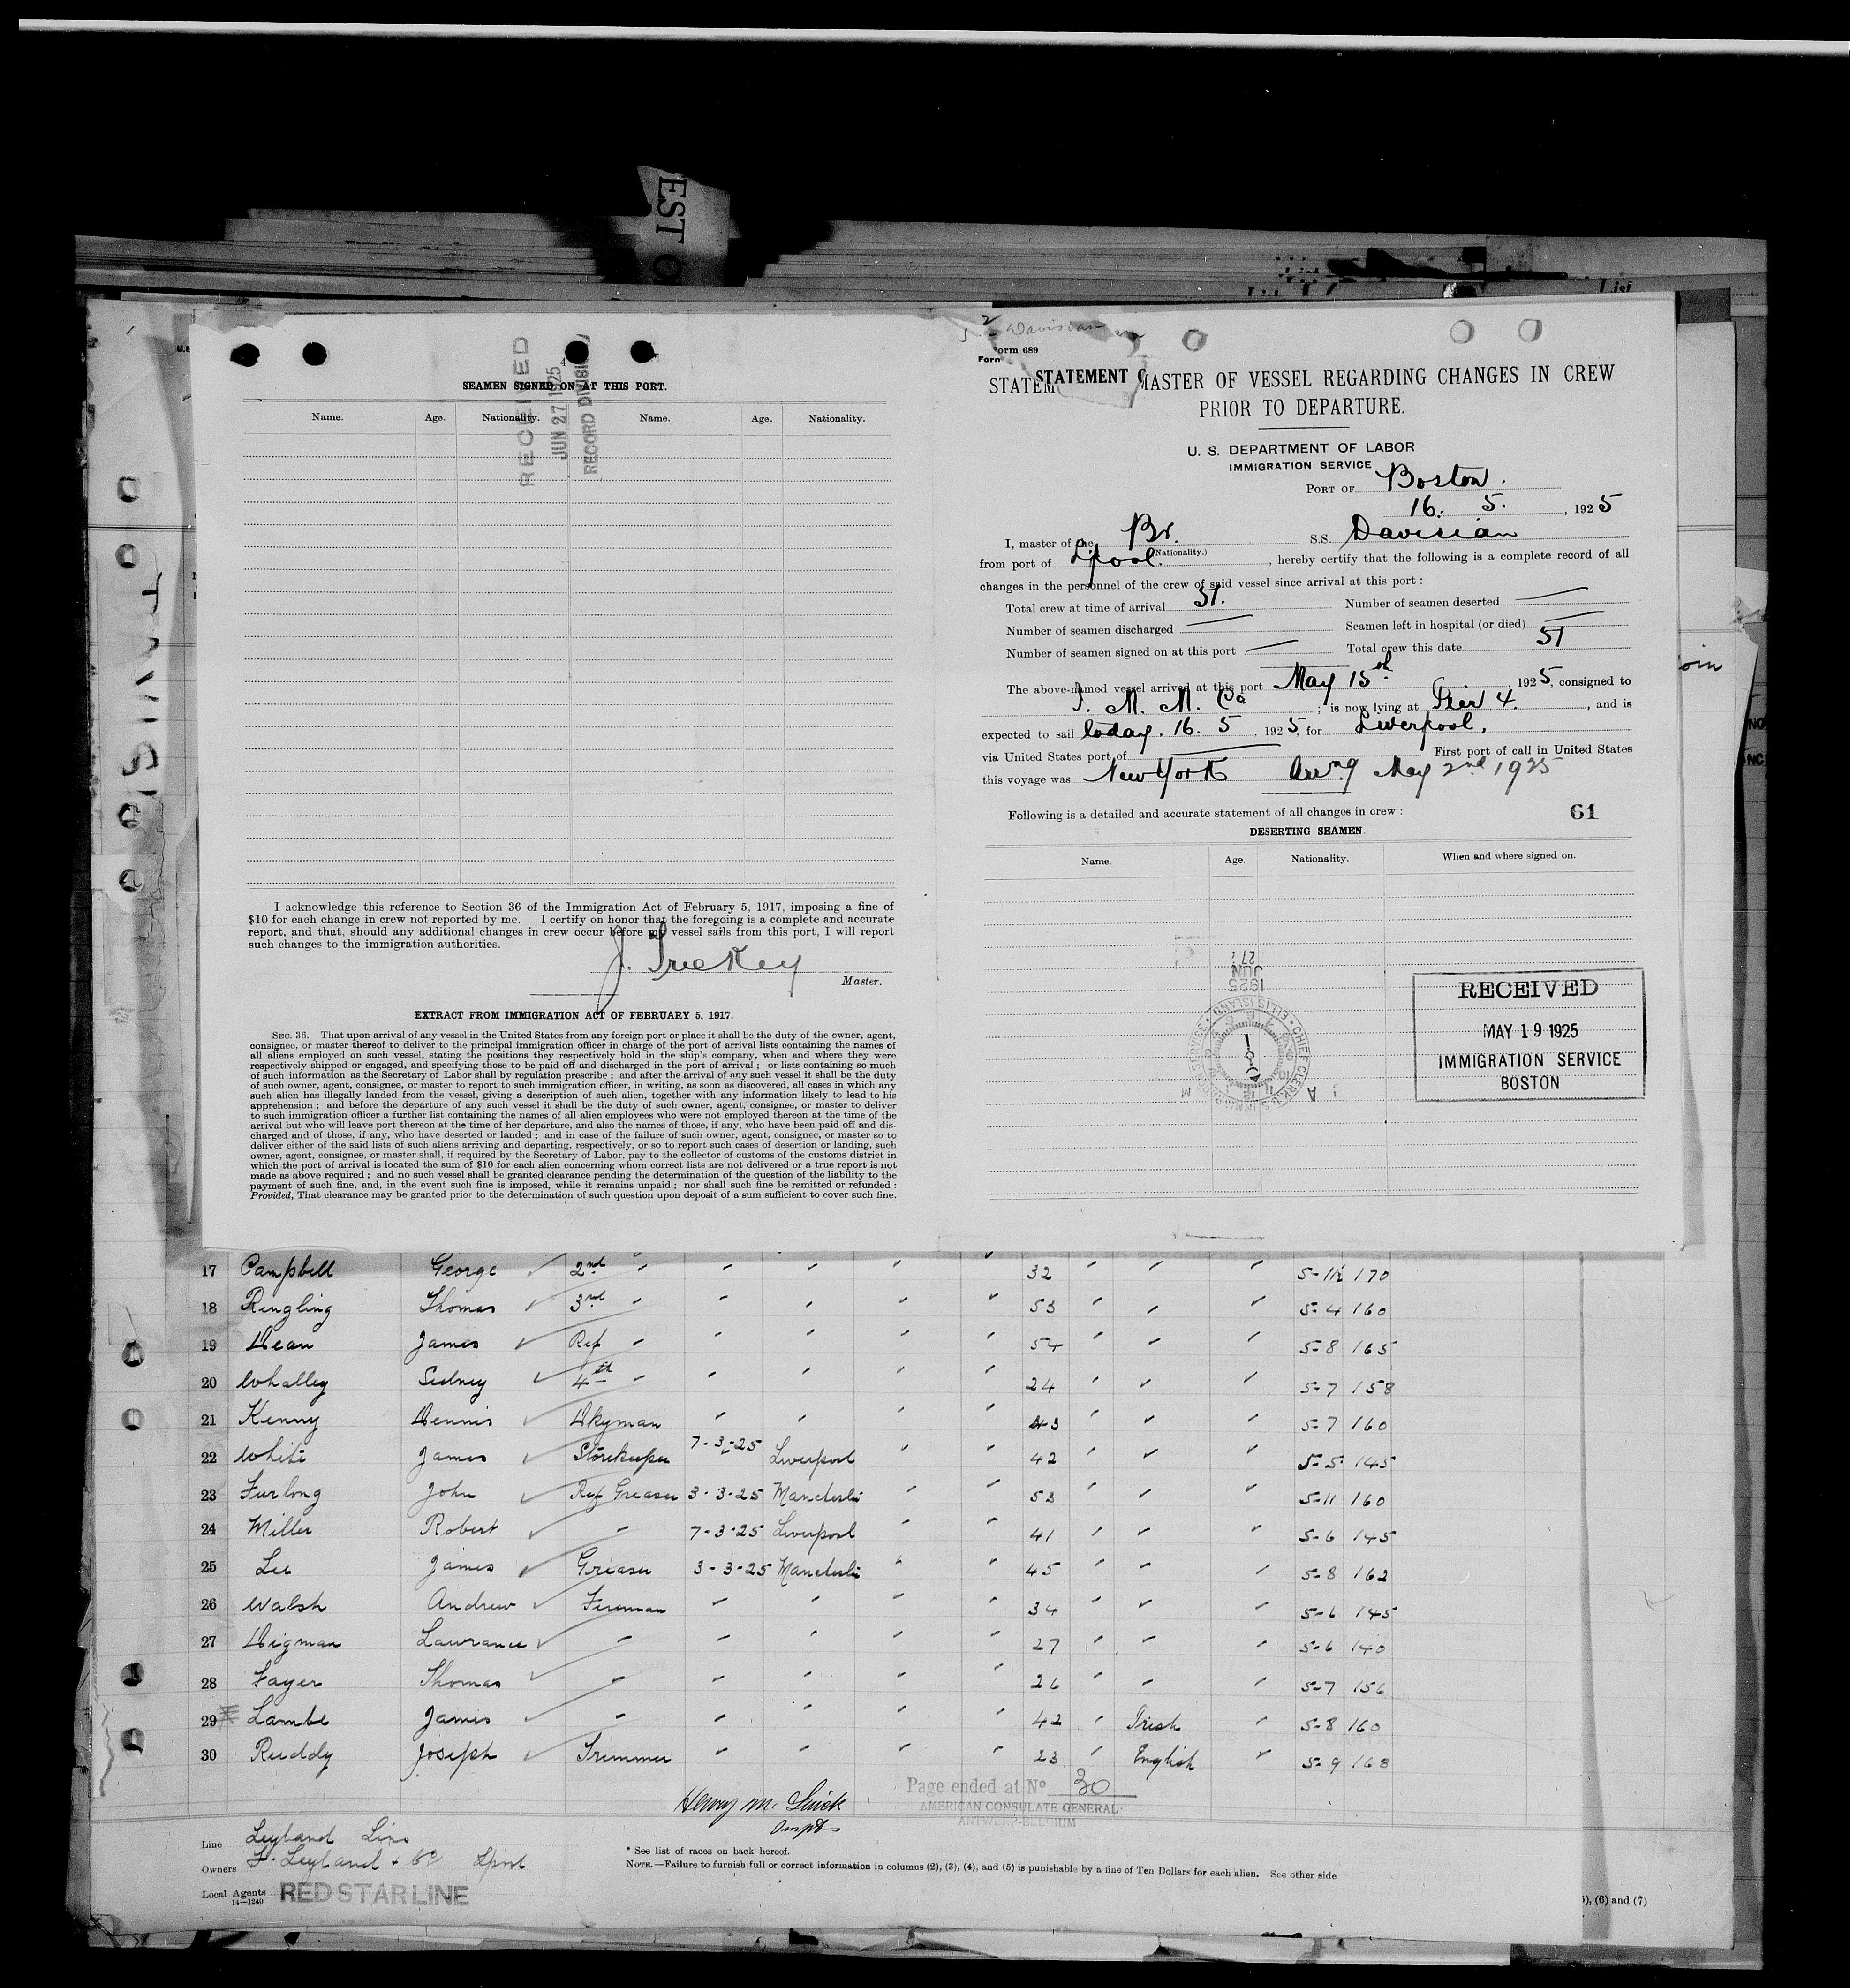 EST O
List
RECEIVED
JUN 27 1925
RECORD DIVISION
4
SEAMEN SIGNED ON AT THIS PORT.
Name. Age. Nationality. Name. Age. Nationality.
I acknowledge this reference to Section 36 of the Immigration Act of February 5, 1917, imposing a fine of
$10 for each change in crew not reported by me. I certify on honor that the foregoing is a complete and accurate
report, and that, should any additional changes in crew occur before my vessel sails from this port, I will report
such changes to the immigration authorities.
J. Trickey
Master.
EXTRACT FROM IMMIGRATION ACT OF FEBRUARY 5, 1917.
SEC. 36. That upon arrival of any vessel in the United States from any foreign port or place it shall be the duty of the owner, agent,
consignee, or master thereof to deliver to the principal immigration officer in charge of the port of arrival lists containing the names of
all aliens employed on such vessel, stating the positions they respectively hold in the ship's company, when and where they were
respectively shipped or engaged, and specifying those to be paid off and discharged in the port of arrival; or lists containing so much
of such information as the Secretary of Labor shall by regulation prescribe; and after the arrival of any such vessel it shall be the duty
of such owner, agent, consignee, or master to report to such immigration officer, in writing, as soon as discovered, all cases in which any
such alien has illegally landed from the vessel, giving a description of such alien, together with any information likely to lead to his
apprehension; and before the departure of any such vessel it shall be the duty of such owner, agent, consignee, or master to deliver
to such immigration officer a further list containing the names of all alien employees who were not employed thereon at the time of the
arrival but who will leave port thereon at the time of her departure, and also the names of those, if any, who have been paid off and dis-
charged and of those, if any, who have deserted or landed; and in case of the failure of such owner, agent, consignee, or master so to
deliver either of the said lists of such aliens arriving and departing, respectively, or so to report such cases of desertion or landing, such
owner, agent, consignee, or master shall, if required by the Secretary of Labor, pay to the collector of customs of the customs district in
which the port of arrival is located the sum of $10 for each alien concerning whom correct lists are not delivered or a true report is not
made as above required; and no such vessel shall be granted clearance pending the determination of the question of the liability to the
payment of such fine, and, in the event such fine is imposed, while it remains unpaid; nor shall such fine be remitted or refunded:
Provided, That clearance may be granted prior to the determination of such question upon deposit of a sum sufficient to cover such fine.
Davisian
Form 689
STATEMENT OF MASTER OF VESSEL REGARDING CHANGES IN CREW
PRIOR TO DEPARTURE.
U. S. DEPARTMENT OF LABOR
IMMIGRATION SERVICE
PORT OF Boston.
16. 5. , 1925
I, master of the Br. S.S. Davisian
(Nationality.)
from port of L'pool. , hereby certify that the following is a complete record of all
changes in the personnel of the crew of said vessel since arrival at this port:
Total crew at time of arrival 51. Number of seamen deserted —
Number of seamen discharged — Seamen left in hospital (or died) —
Number of seamen signed on at this port — Total crew this date 51
The above-named vessel arrived at this port May 15th , 1925, consigned to
I. M. M. Co ; is now lying at Pier 4. , and is
expected to sail today. 16. 5 , 1925, for Liverpool.
via United States port of — First port of call in United States
this voyage was New York Arrng May 2nd 1925
Following is a detailed and accurate statement of all changes in crew: 61
DESERTING SEAMEN.
Name. Age. Nationality. When and where signed on.
1925
JUN
27
CHIEF CLERK U.S. IMMIGRATION SERVICE ELLIS ISLAND
RECEIVED
MAY 19 1925
IMMIGRATION SERVICE
BOSTON
17 Campbell George 2nd " " " " 32 " " " 5-11½ 170
18 Ringling Thomas 3rd " " " " " 53 " " " 5-4 160
19 Dean James Ref " " " " " 54 " " " 5-8 165
20 Whalley Sidney 4th " " " " " 24 " " " 5-7 158
21 Kenny Dennis Dkyman " " " " 43 " " " 5-7 160
22 White James Storekeeper 7-3-25 Liverpool " " 42 " " " 5-5 145
23 Furlong John Ref Greaser 3-3-25 Manchester " " 53 " " " 5-11 160
24 Miller Robert " 7-3-25 Liverpool " " 41 " " " 5-6 145
25 Lee James Greaser 3-3-25 Manchester " " 45 " " " 5-8 162
26 Walsh Andrew Fireman " " " " 34 " " " 5-6 145
27 Digman Lawrance " " " " " 27 " " " 5-6 140
28 Fayer Thomas " " " " " 26 " " " 5-7 156
29 Lambe James " " " " " 42 " Irish " 5-8 160
30 Ruddy Joseph Trimmer " " " " 23 " English " 5-9 168
Page ended at No 30
AMERICAN CONSULATE GENERAL
ANTWERP-BELGIUM
Line Leyland Line
Owners F. Leyland & Co Lpool
Local Agents RED STAR LINE
14—1240
* See list of races on back hereof.
NOTE.—Failure to furnish full or correct information in columns (2), (3), (4), and (5) is punishable by a fine of Ten Dollars for each alien. See other side
(6) and (7)